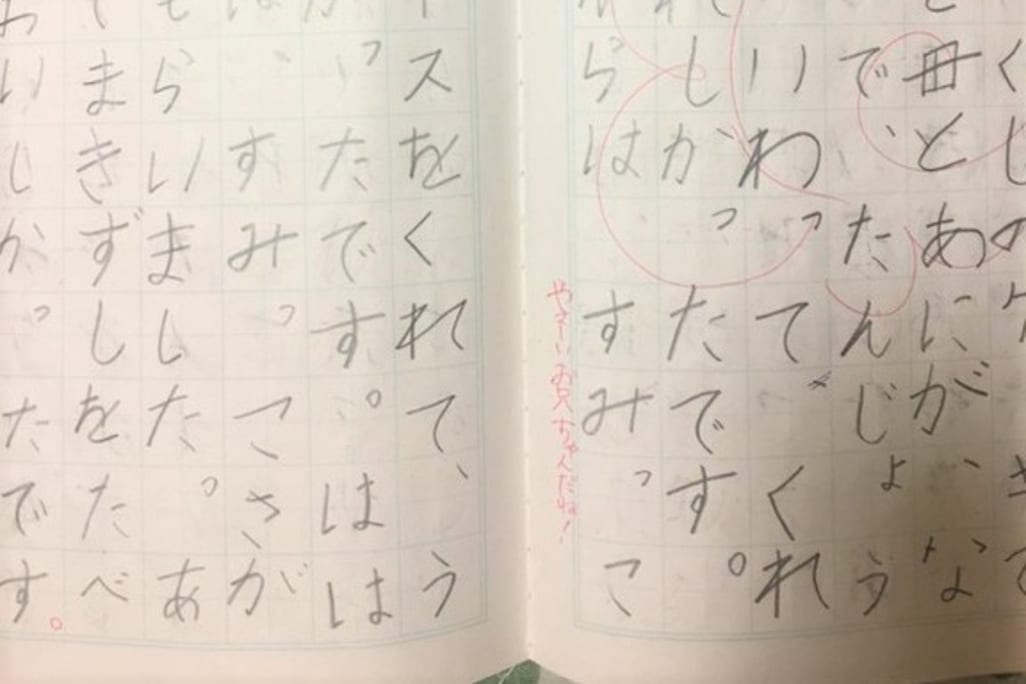 くしのケ
と母とあにが、な
で、たんじょう
いわってくれ
れしかったです。
らはすみっこ
やさしいお兄ちゃんだね!
スをくれて、う
ったです。はは
はすみっこさが
もらいました。あ
てまきずしをたべ
いしかったです。